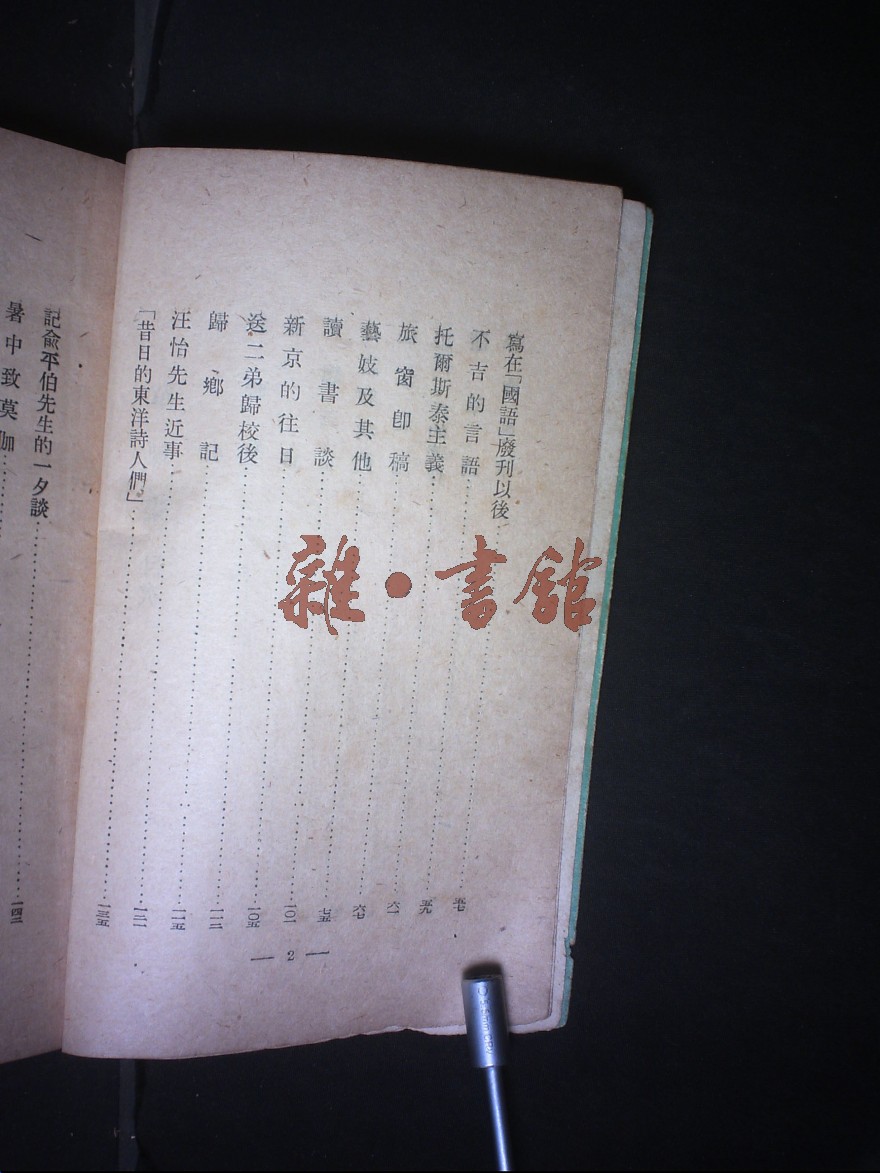 寫在「國語」廢刊以後……五七
不吉的言語……五九
托爾斯泰主義……六一
旅窗卽稿……六七
藝妓及其他……七五
讀書談……一〇一
新京的往日……一〇五
送二弟歸校後……一一二
歸鄉記……一一五
汪怡先生近事……一二一
「昔日的東洋詩人們」……一三五
— 2 —
記俞平伯先生的一夕談……一四二
暑中致莫伽
雜·書館